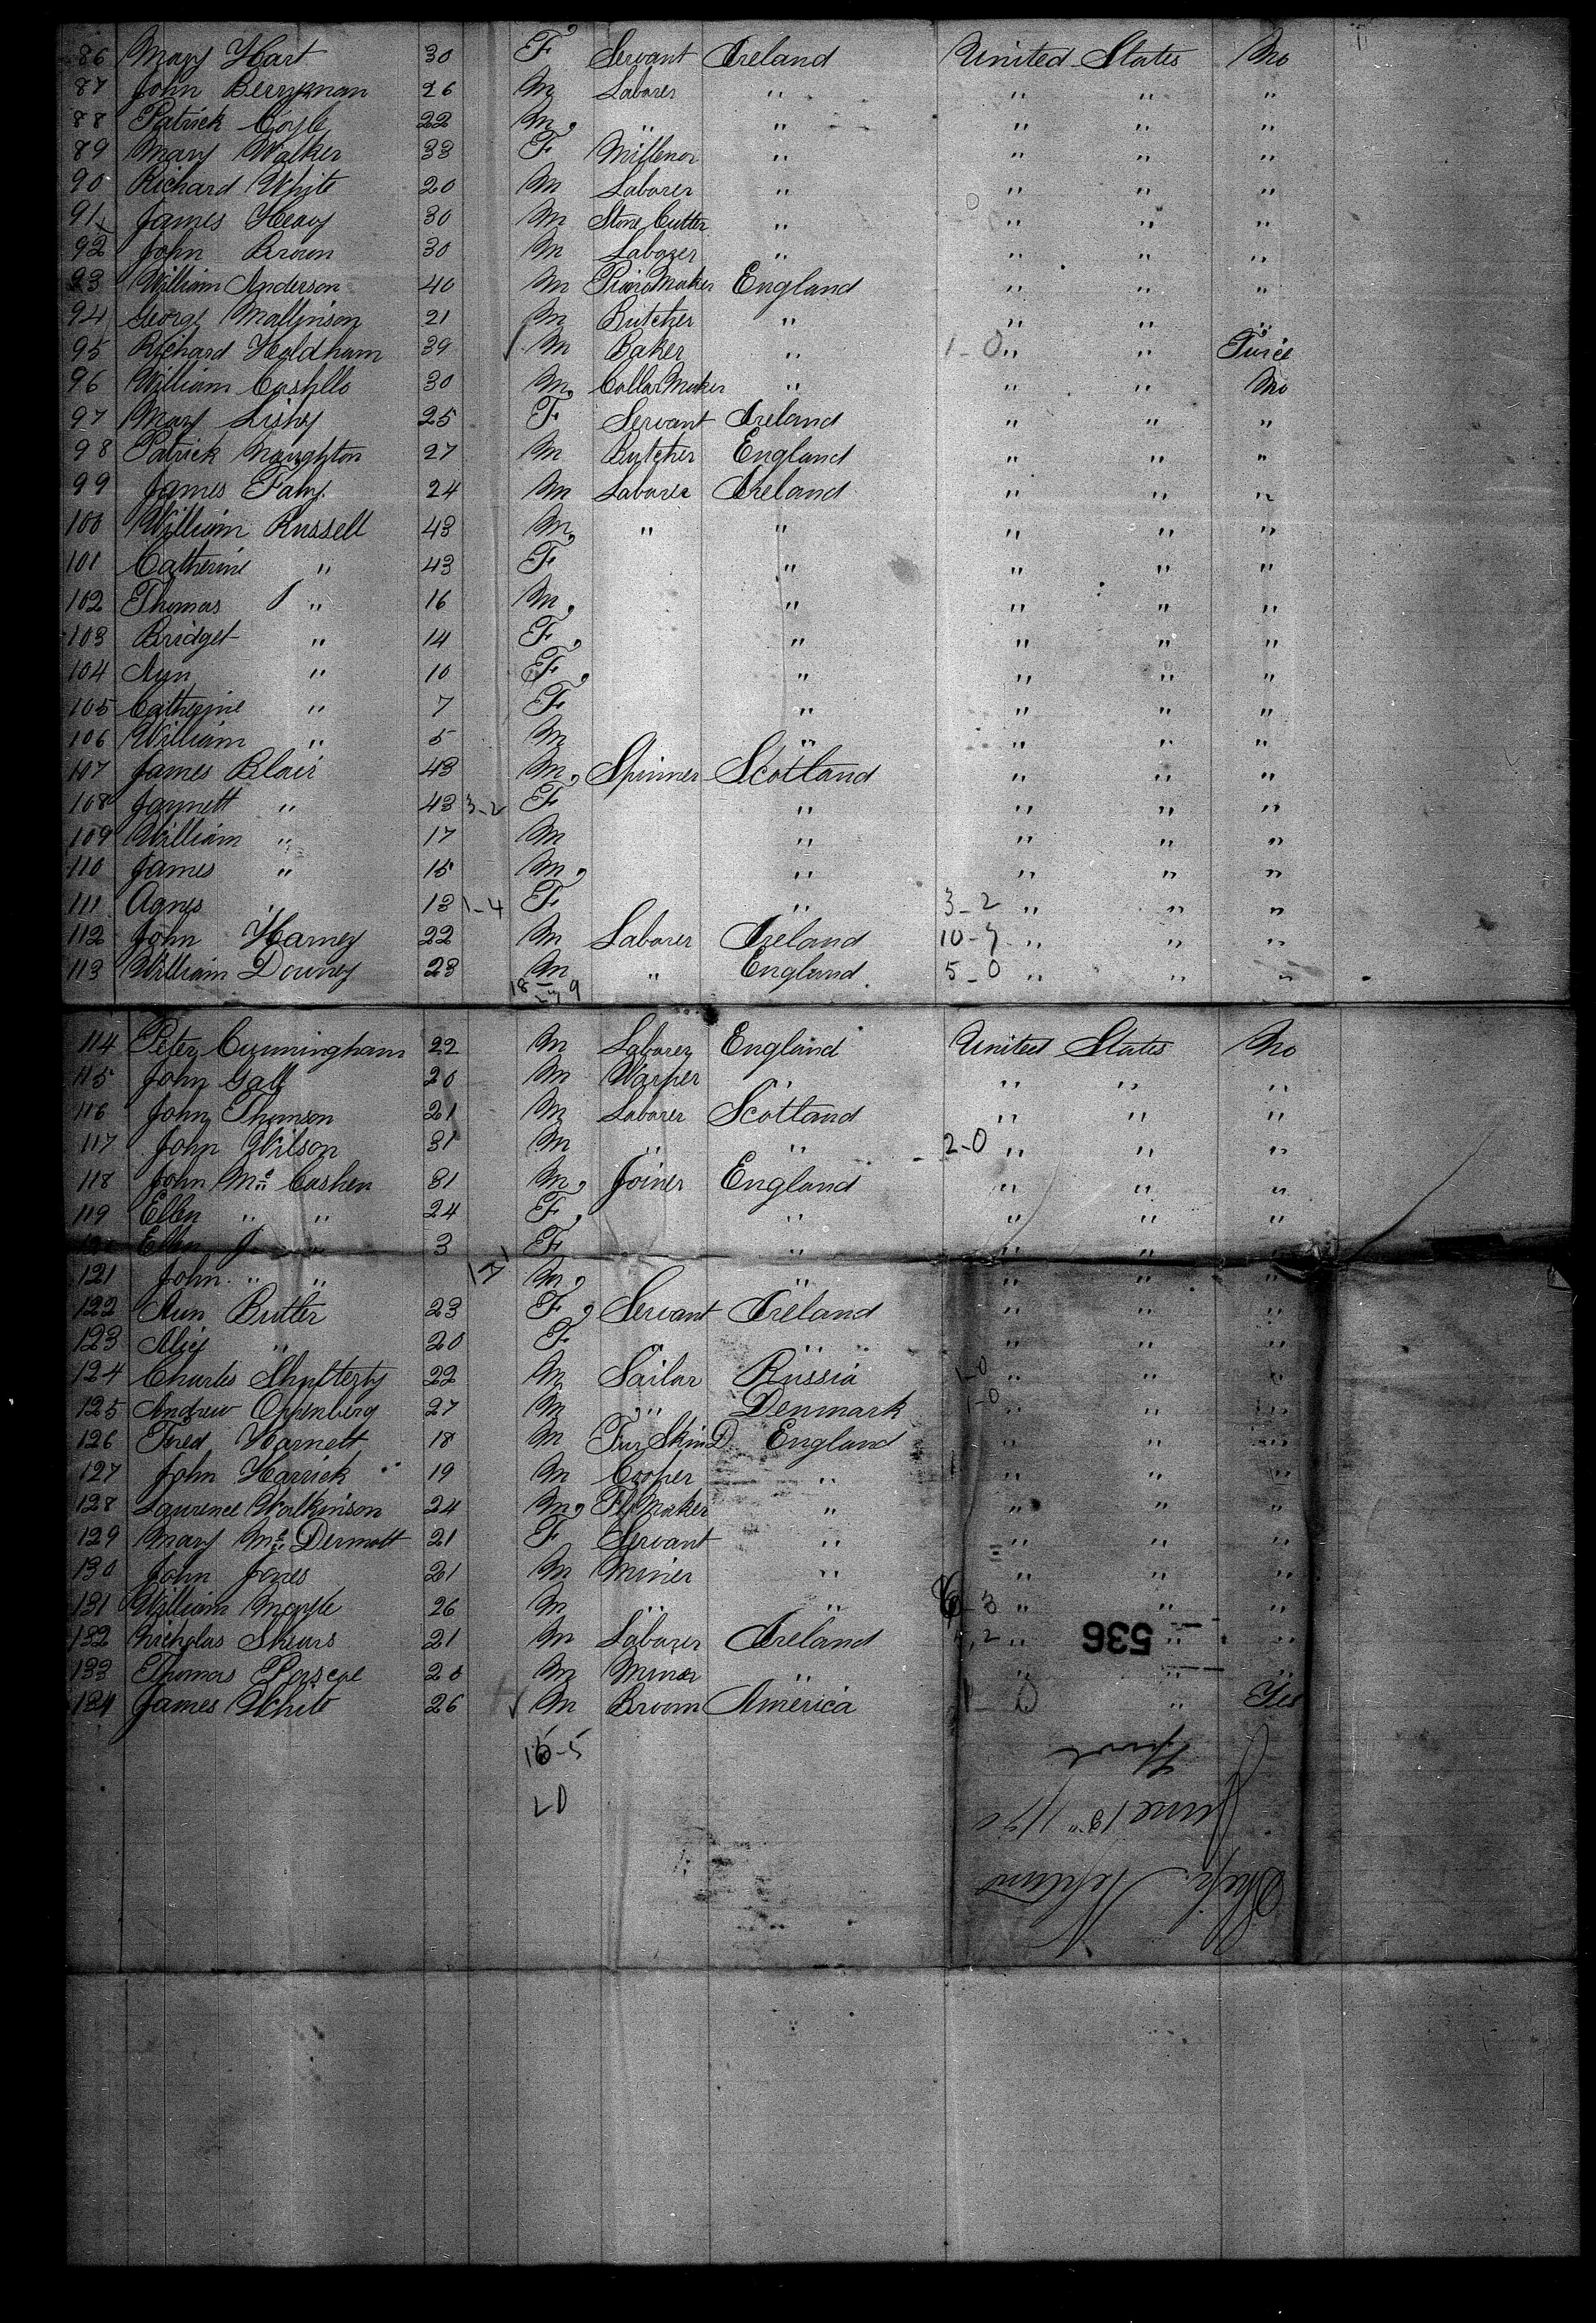 86 Mary Hart 30 F Servant Ireland United States No
87 John Berryman 26 M Laborer " " " "
88 Patrick Coyle 22 M " " " " "
89 Mary Walker 33 F Millenor " " " "
90 Richard White 20 M Laborer " " " "
91 James Heavy 30 M Stone Cutter " " " "
92 John Brown 30 M Laborer " " " "
93 William Anderson 40 M Piano Maker England " " "
94 George Mallinson 21 M Butcher " " " "
95 Richard Holdham 39 M Baker " 1-0 " " Twice
96 William Costello 30 M Collar Maker " " " No
97 Mary 25 F Servant Ireland " " "
98 Patrick Naughton 27 M Butcher England " " "
99 James Fahy 24 M Laborer Ireland " " "
100 William Russell 43 M " " " " "
101 Catherine " 43 F " " " "
102 Thomas " 16 M " " " "
103 Bridget " 14 F " " " "
104 Ann " 10 F " " " "
105 Catherine " 7 F " " " "
106 William " 5 M " " " "
107 James Blair 43 M Spinner Scotland " " "
108 Jannett " 43 3-2 F " " " "
109 William " 17 M " " " "
110 James " 15 M " " " "
111 Agnes " 13 1-4 F " 3-2 " " "
112 John Harney 22 M Laborer Ireland 10-7 " " "
113 William Downey 23 M " England 5-0 " " "
18 9
114 Peter Cunningham 22 M Laborer England United States No
115 John Gall 20 M Warper " " " "
116 John Thomson 21 M Laborer Scotland " " "
117 John Wilson 31 M " " 2-0 " " "
118 John Mc Cashen 31 M Joiner England " " "
119 Ellen " " 24 F " " " "
120 Ellen J " 3 F " " " "
121 John " " M " " " "
122 Ann Butler 23 F Servant Ireland " " "
123 Alice " 20 F " " " "
124 Charles 22 M Sailor Russia 1-0 " " "
125 Andrew Oppenberg 27 M " Denmark 1-0 " " "
126 Fred Harnett 18 M Fur Skin D England " " "
127 John Harrick 19 M Cooper " " " "
128 Laurence Walkinson 24 M Maker " " " "
129 Mary Mc Dermott 21 F Servant " " " "
130 John Jones 21 M Miner " " " "
131 William 26 M " " 3 " " "
132 Nicholas Skews 21 M Laborer Ireland 2 " " "
133 Thomas Pascoe 20 M Miner " " " "
134 James White 26 M Broom America 1-0 " Yes
536
16-5
LD
June 13"
Ship